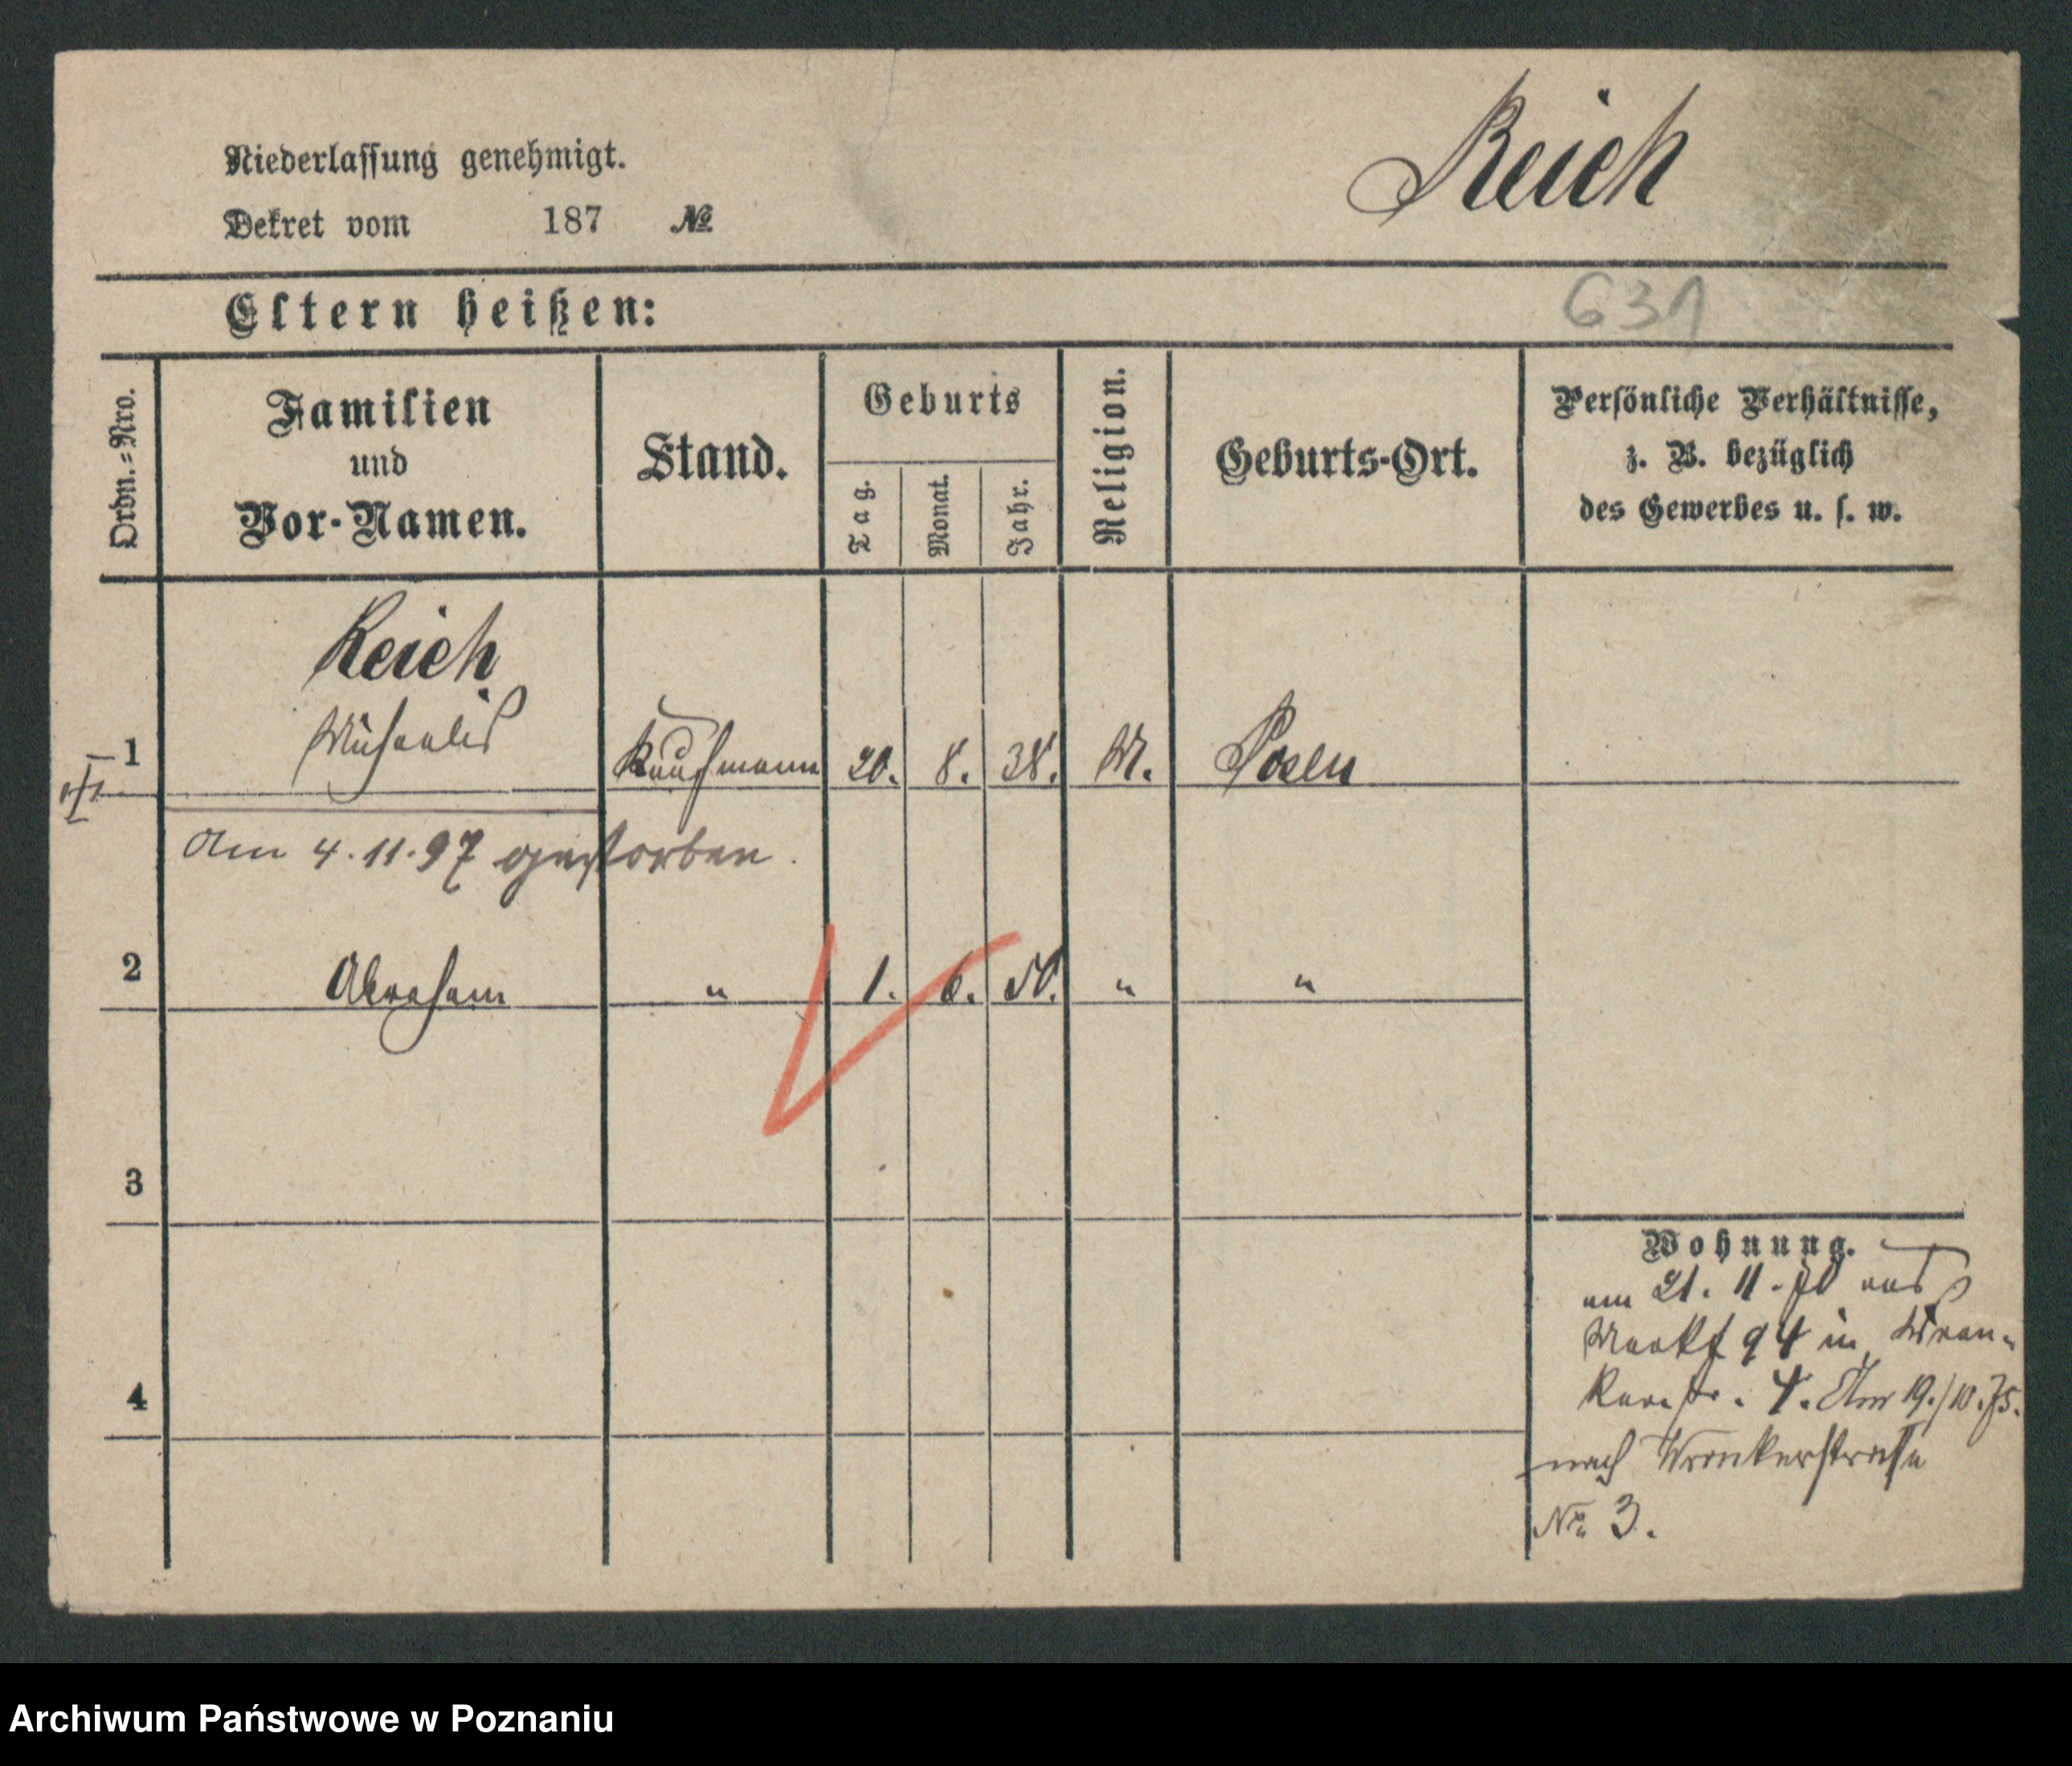 Niederlassung genehmigt.
Dekret vom 187 №
Reich
Eltern heißen:
631
Ordn.=Nro.
Familien
und
Vor-Namen.
Stand.
Geburts
Tag.
Monat.
Jahr.
Religion.
Geburts-Ort.
Persönliche Verhältnisse,
z. B. bezüglich
des Gewerbes u. s. w.
Reich
1 Michaelis Kaufmann 20. 8. 38. M. Posen
Am 4.11.97 gestorben.
2 Abraham " 1. 6. 50. " "
3
4
Wohnung.
am 21. 11. 70 aus
Markt 94 in Wron-
kerstr. 4. Am 19./10.75.
nach Wronkerstraße
No. 3.
Archiwum Państwowe w Poznaniu